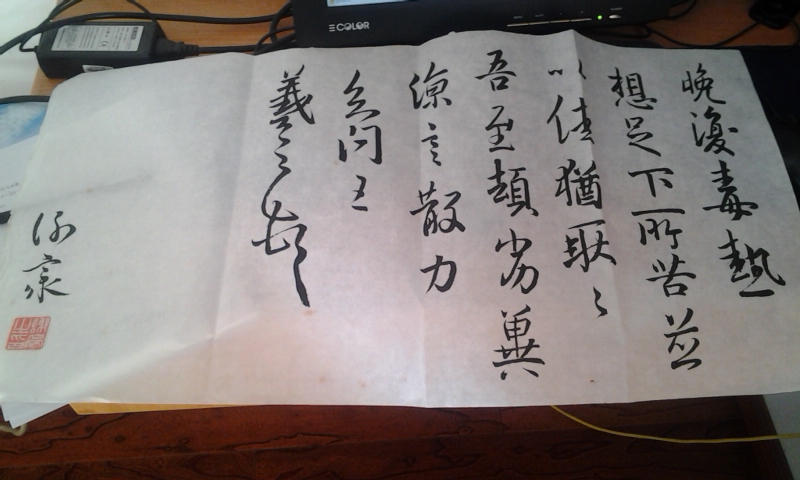 ECOLOR
晚復毒熱
想足下所苦並
以佳猶耿〻
吾至頓劣冀
涼言散力
知問王
羲之頓首